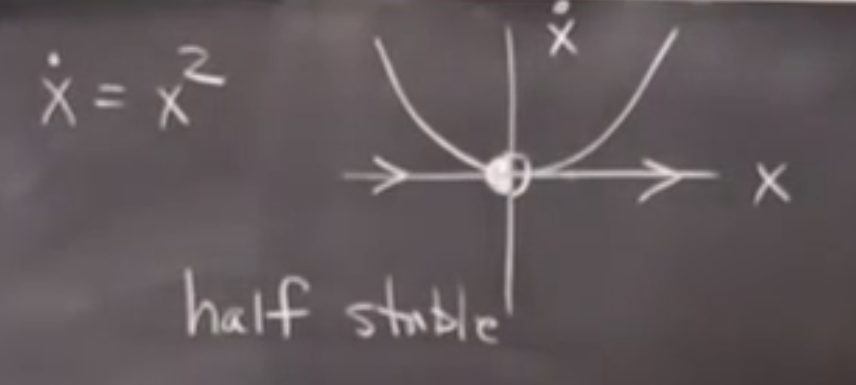 ẋ = x²
ẋ
x
half stable